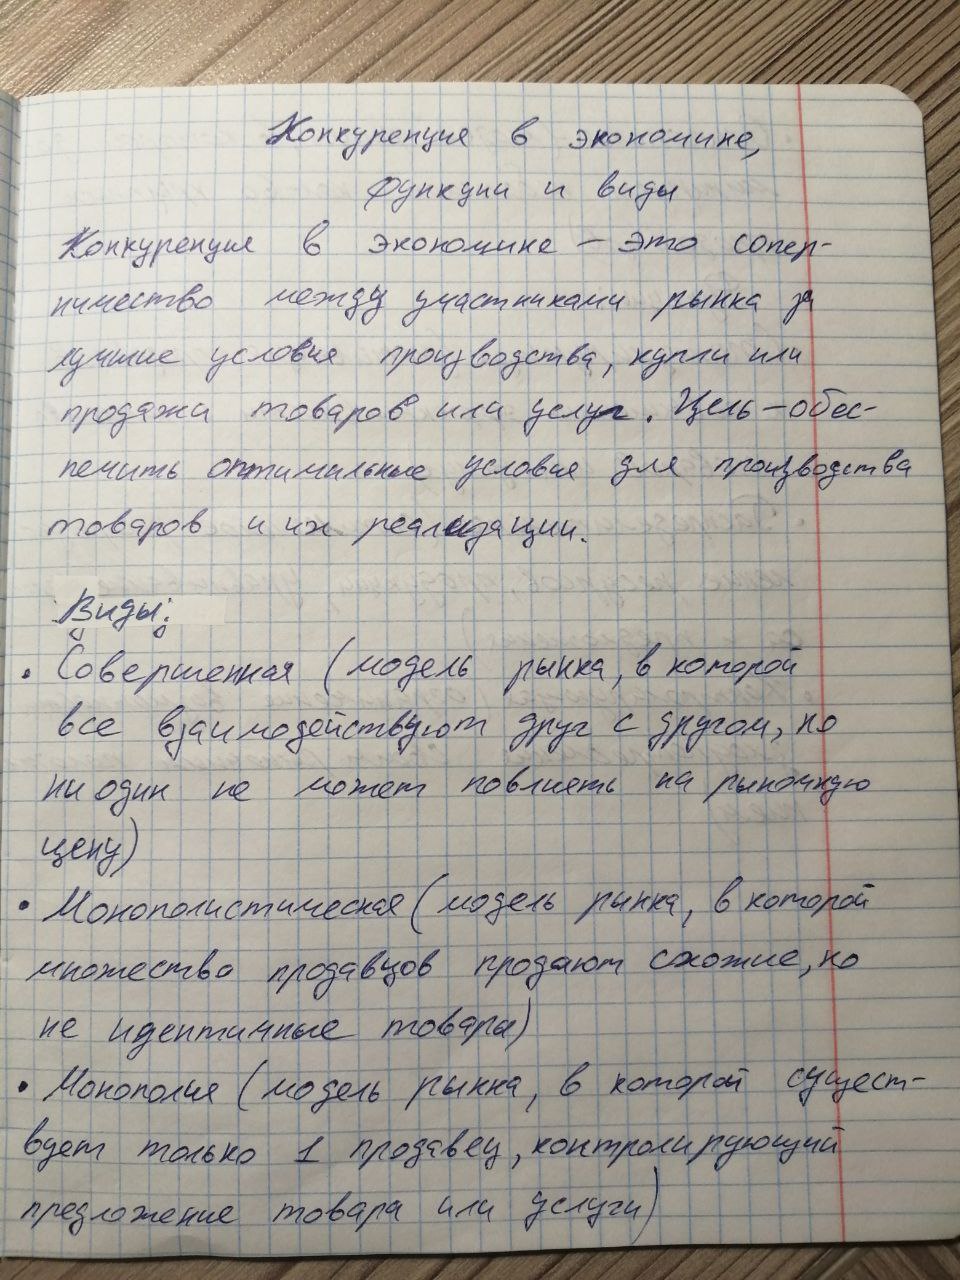 Конкуренция в экономике,
функции и виды
Конкуренция в экономике – это сопер-
ничество между участниками рынка за
лучшие условия производства, купли или
продажи товаров или услуг. Цель – обес-
печить оптимальные условия для производства
товаров и их реализации.
Виды:
• Совершенная (модель рынка, в которой
все взаимодействуют друг с другом, но
ни один не может повлиять на рыночную
цену)
• Монополистическая (модель рынка, в которой
множество продавцов продают схожие, но
не идентичные товары)
• Монополия (модель рынка, в которой сущест-
вует только 1 продавец, контролирующий
предложение товара или услуги)